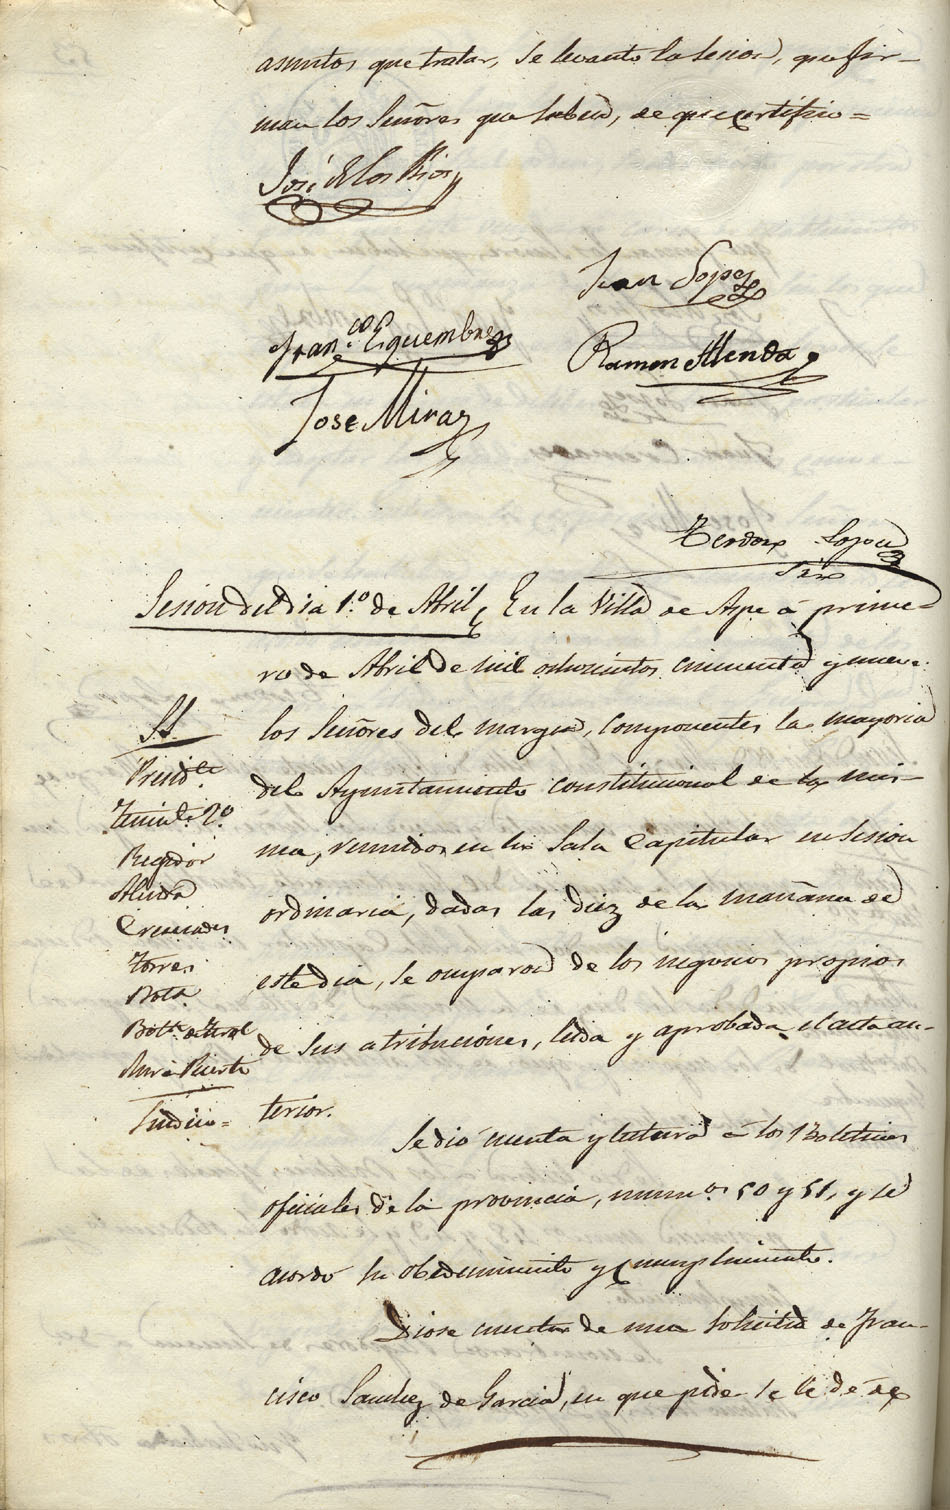 asuntos que tratar, se levanto la sesion, que fir-
man los Señores que saben, de que certifico =
José de los Rios
Juan Lopez
Fran.co Eguembre
Ramon Alenda
Jose Mira
Srio
Sesion del dia 1.º de Abril, En la Villa de Aspe á prime-
ro de Abril de mil ochocientos cincuenta y nueve:
los Señores del margen, componentes la mayoria
del Ayuntamiento constitucional de la mis-
ma, reunidos en la Sala Capitular en sesion
ordinaria, dadas las diez de la mañana de
este dia, se ocuparon de los negocios propios
de sus atribuciones, leida y aprobada el acta an-
terior.
SS.
Presid.te
Tenien.te 2.º
Regidor
Alenda
Cremades
Torres
Botella
Mira Puerto
Sindico =
Se dió cuenta y lectura á los Boletines
oficiales de la provincia, numeos 50 y 51, y se
acordó su obedecimiento y cumplimiento.
Diose cuenta de una solicitud de Fran-
cisco Sanchez de Garcia, en que pide se le dé de